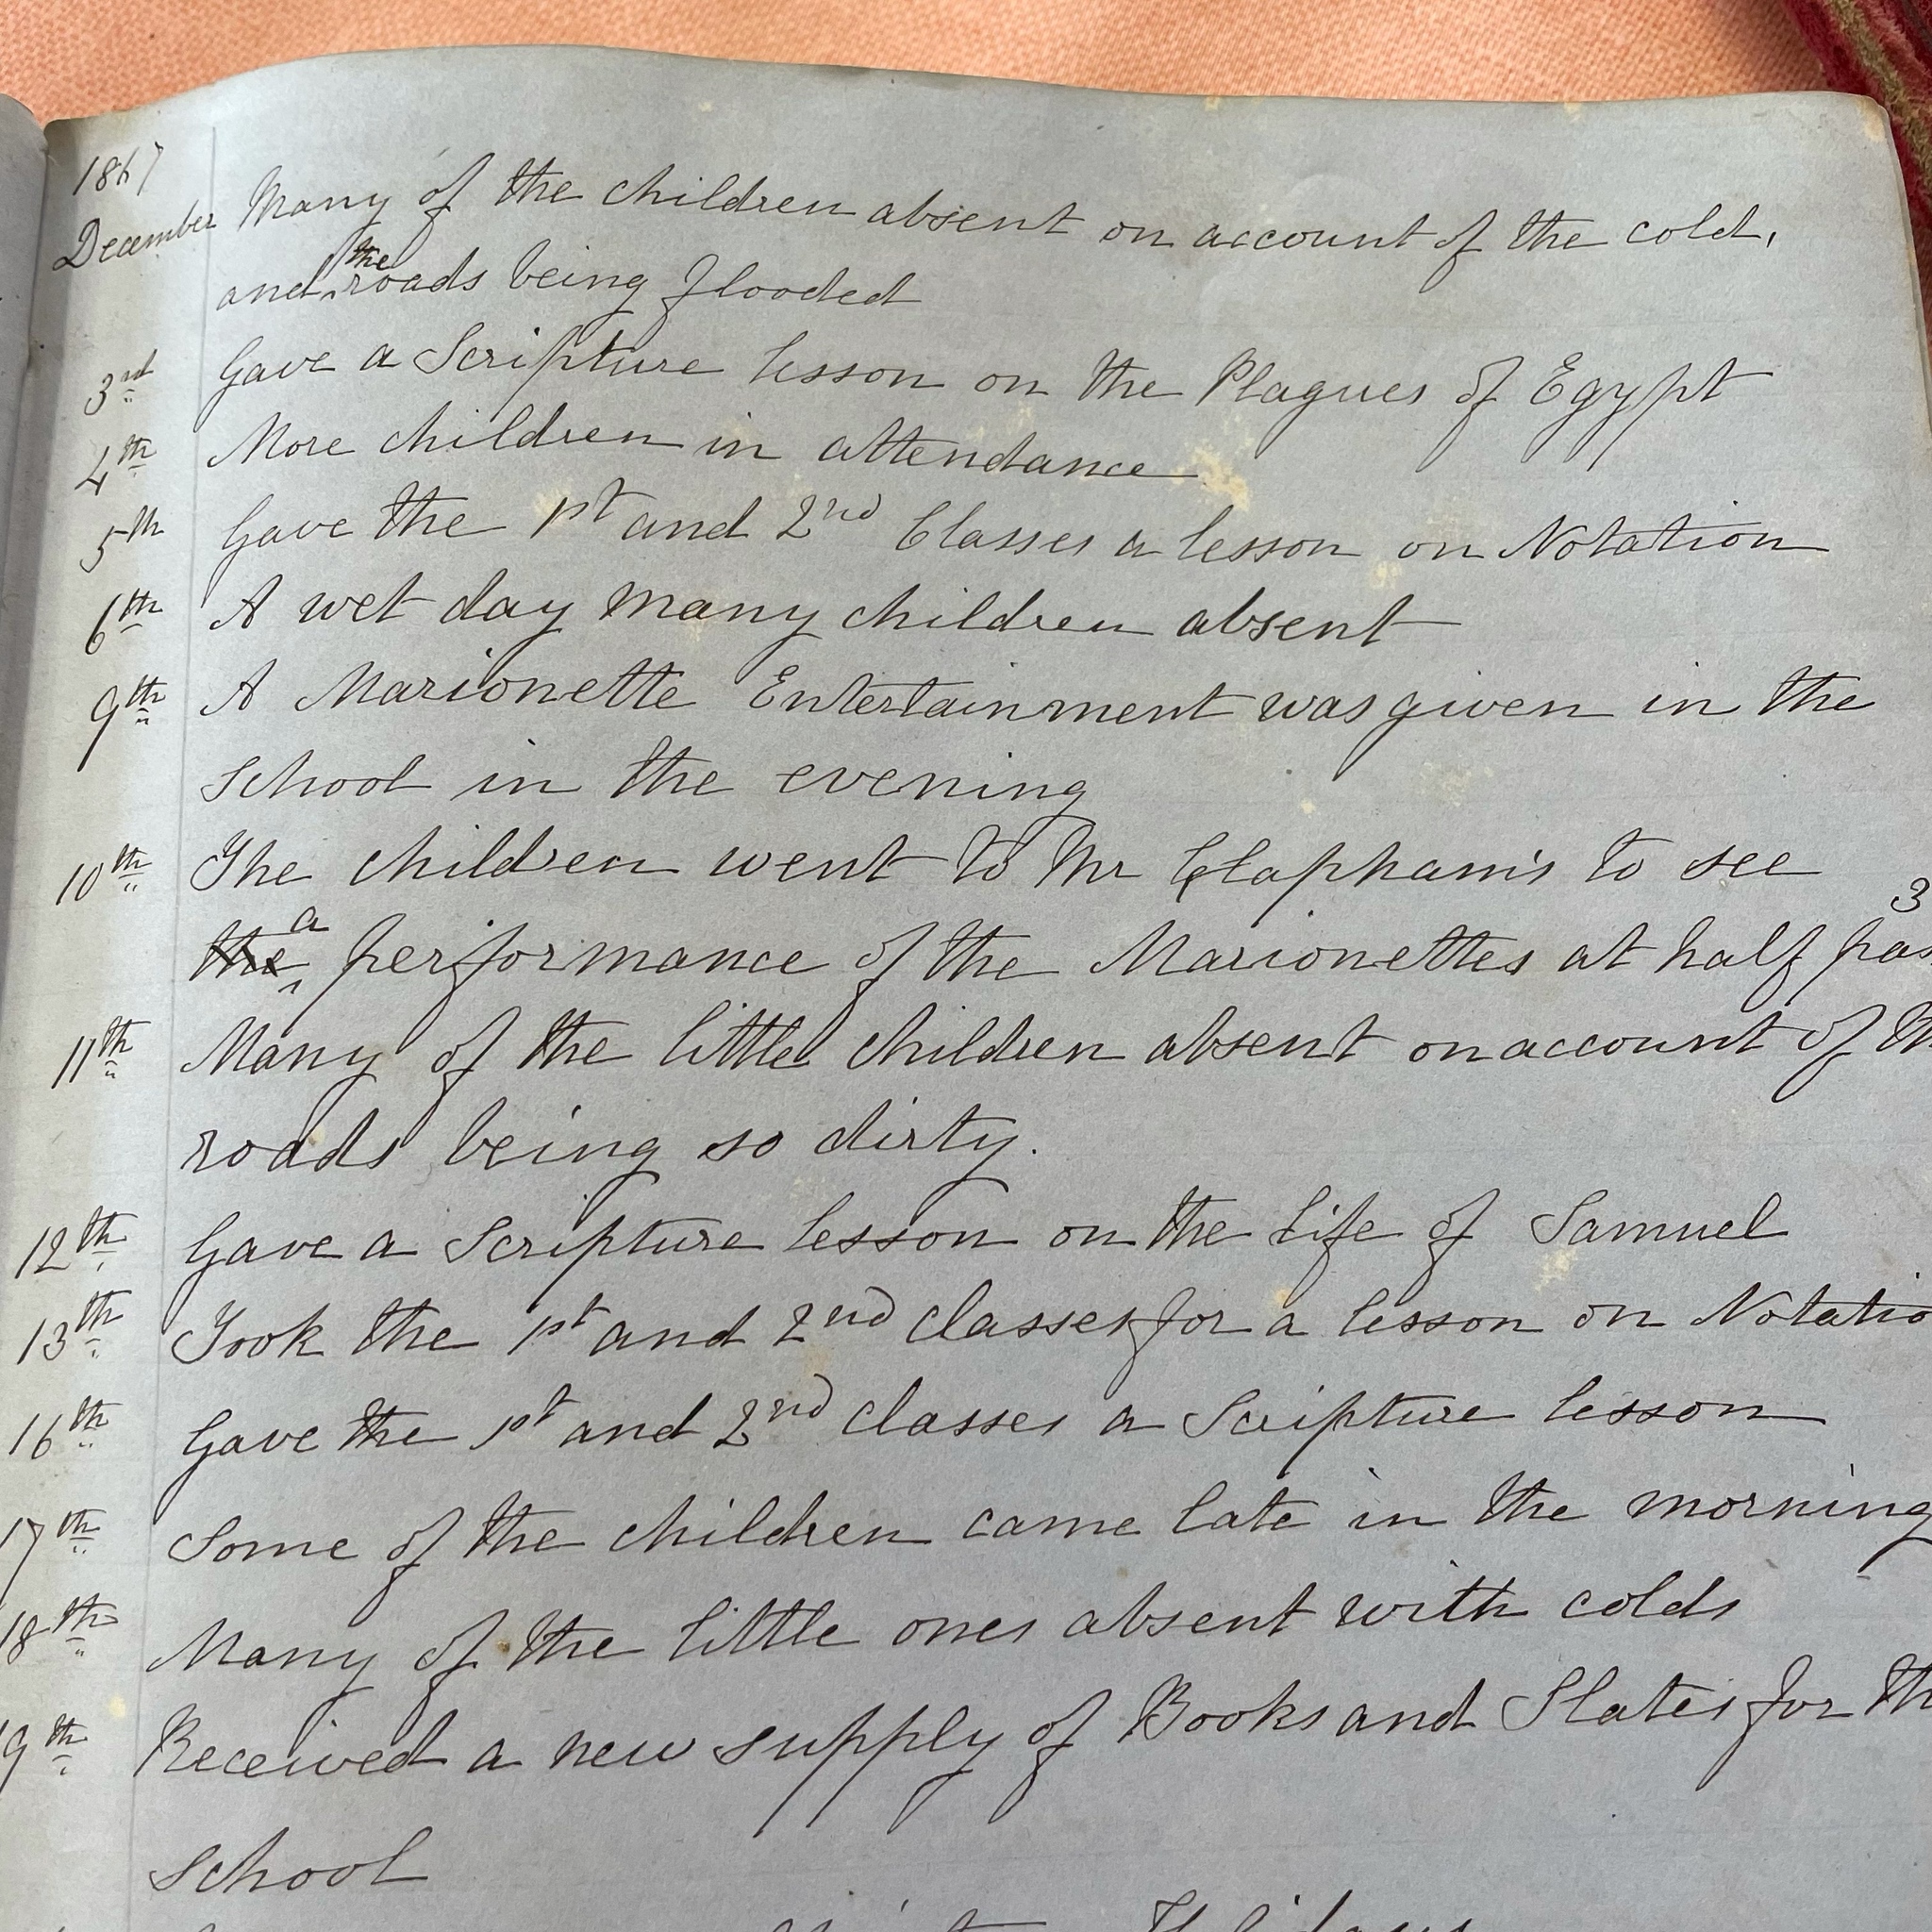 1867
December Many of the children absent on account of the cold,
and the roads being flooded
3rd Gave a Scripture lesson on the Plagues of Egypt
4th More children in attendance
5th Gave the 1st and 2nd Classes a lesson on Notation
6th A wet day many children absent
9th A Marionette Entertainment was given in the
school in the evening
10th The children went to Mr Clapham's to see
the a performance of the Marionettes at half pas 3
11th Many of the little children absent on account of th
roads being so dirty.
12th Gave a Scripture lesson on the Life of Samuel
13th Took the 1st and 2nd classes for a lesson on Notatio
16th Gave the 1st and 2nd classes a Scripture lesson
17th Some of the children came late in the morning
18th Many of the little ones absent with colds
19th Received a new supply of Books and Slates for th
school
Holidays